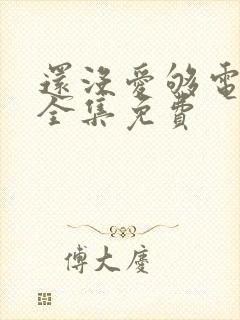 還沒愛够電
全集免費
傅大慶